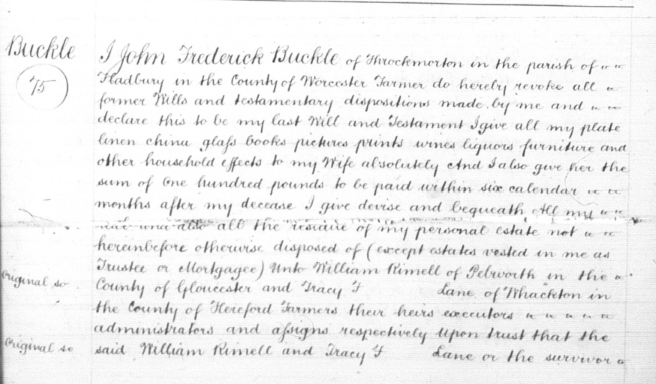 Buckle
75
I John Frederick Buckle of Throckmorton in the parish of
Fladbury in the County of Worcester Farmer do hereby revoke all
former Wills and testamentary dispositions made by me and
declare this to be my last Will and Testament I give all my plate
linen china glass books pictures prints wines liquors furniture and
other household effects to my Wife absolutely And I also give her the
sum of One hundred pounds to be paid within six calendar
months after my decease I give devise and bequeath All my
and also all the residue of my personal estate not
hereinbefore otherwise disposed of (except estates vested in me as
Trustee or Mortgagee) Unto William Rimell of Pebworth in the
Original so
County of Gloucester and Tracy F Lane of Whackton in
the County of Hereford Farmers their heirs executors
administrators and assigns respectively Upon trust that the
Original so
said William Rimell and Tracy F Lane or the survivor